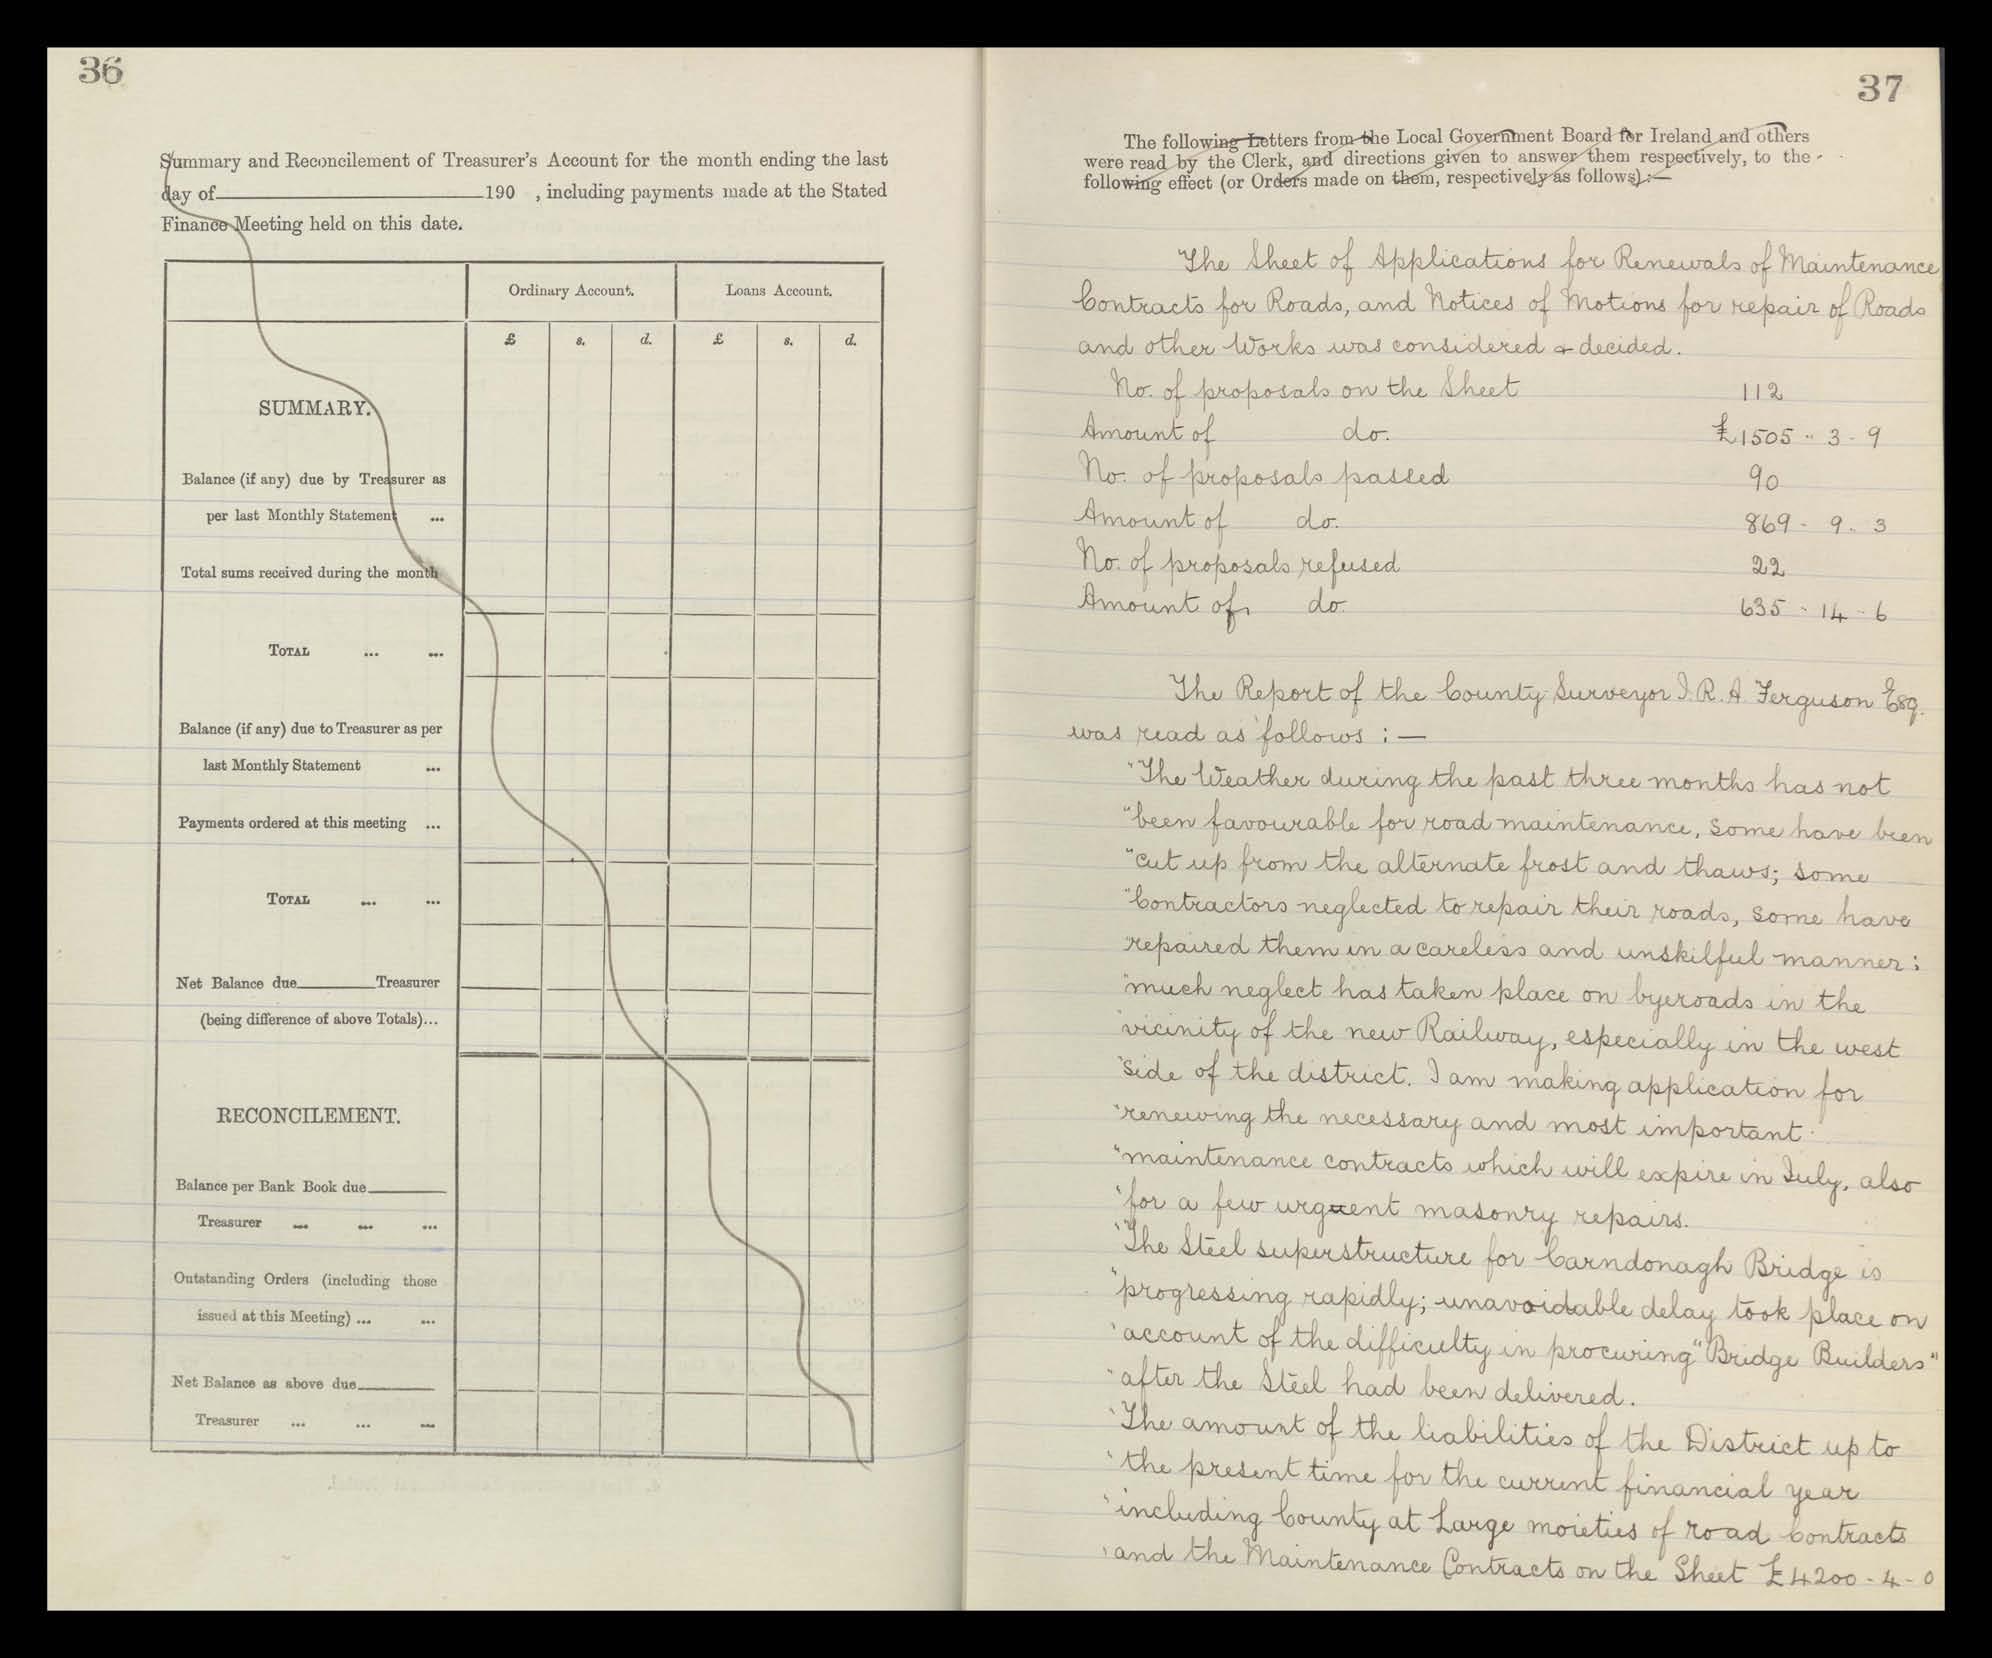 36
Summary and Reconcilement of Treasurer's Account for the month ending the last
day of 190 , including payments made at the Stated
Finance Meeting held on this date.
Ordinary Account. Loans Account.
£ s. d. £ s. d.
SUMMARY.
Balance (if any) due by Treasurer as
per last Monthly Statement ...
Total sums received during the month
TOTAL ... ...
Balance (if any) due to Treasurer as per
last Monthly Statement ...
Payments ordered at this meeting ...
TOTAL ... ...
Net Balance due Treasurer
(being difference of above Totals)...
RECONCILEMENT.
Balance per Bank Book due
Treasurer ... ... ...
Outstanding Orders (including those
issued at this Meeting) ... ...
Net Balance as above due
Treasurer ... ... ...
37
The following Letters from the Local Government Board for Ireland and others
were read by the Clerk, and directions given to answer them respectively, to the
following effect (or Orders made on them, respectively as follows) :—
The Sheet of Applications for Renewals of Maintenance
Contracts for Roads, and Notices of Motions for repair of Roads
and other Works was considered & decided.
No. of proposals on the Sheet 112
Amount of do. £1505 .. 3 - 9
No. of proposals passed 90
Amount of do. 869 - 9 .. 3
No. of proposals refused 22
Amount of do. 635 - 14 - 6
The Report of the County Surveyor I. R. A Ferguson Esq.
was read as follows : —
"The Weather during the past three months has not
"been favourable for road maintenance, some have been
"cut up from the alternate frost and thaws; some
"Contractors neglected to repair their roads, some have
"repaired them in a careless and unskilful manner :
"much neglect has taken place on byeroads in the
"vicinity of the new Railway, especially in the west
"side of the district. I am making application for
"renewing the necessary and most important
"maintenance contracts which will expire in July, also
"for a few urguent masonry repairs.
"The Steel superstructure for Carndonagh Bridge is
"progressing rapidly; unavoidable delay took place on
"account of the difficulty in procuring "Bridge Builders"
"after the Steel had been delivered.
"The amount of the liabilities of the District up to
"the present time for the current financial year
"including County at Large moieties of road Contracts
"and the Maintenance Contracts on the Sheet £4200 - 4 - 0